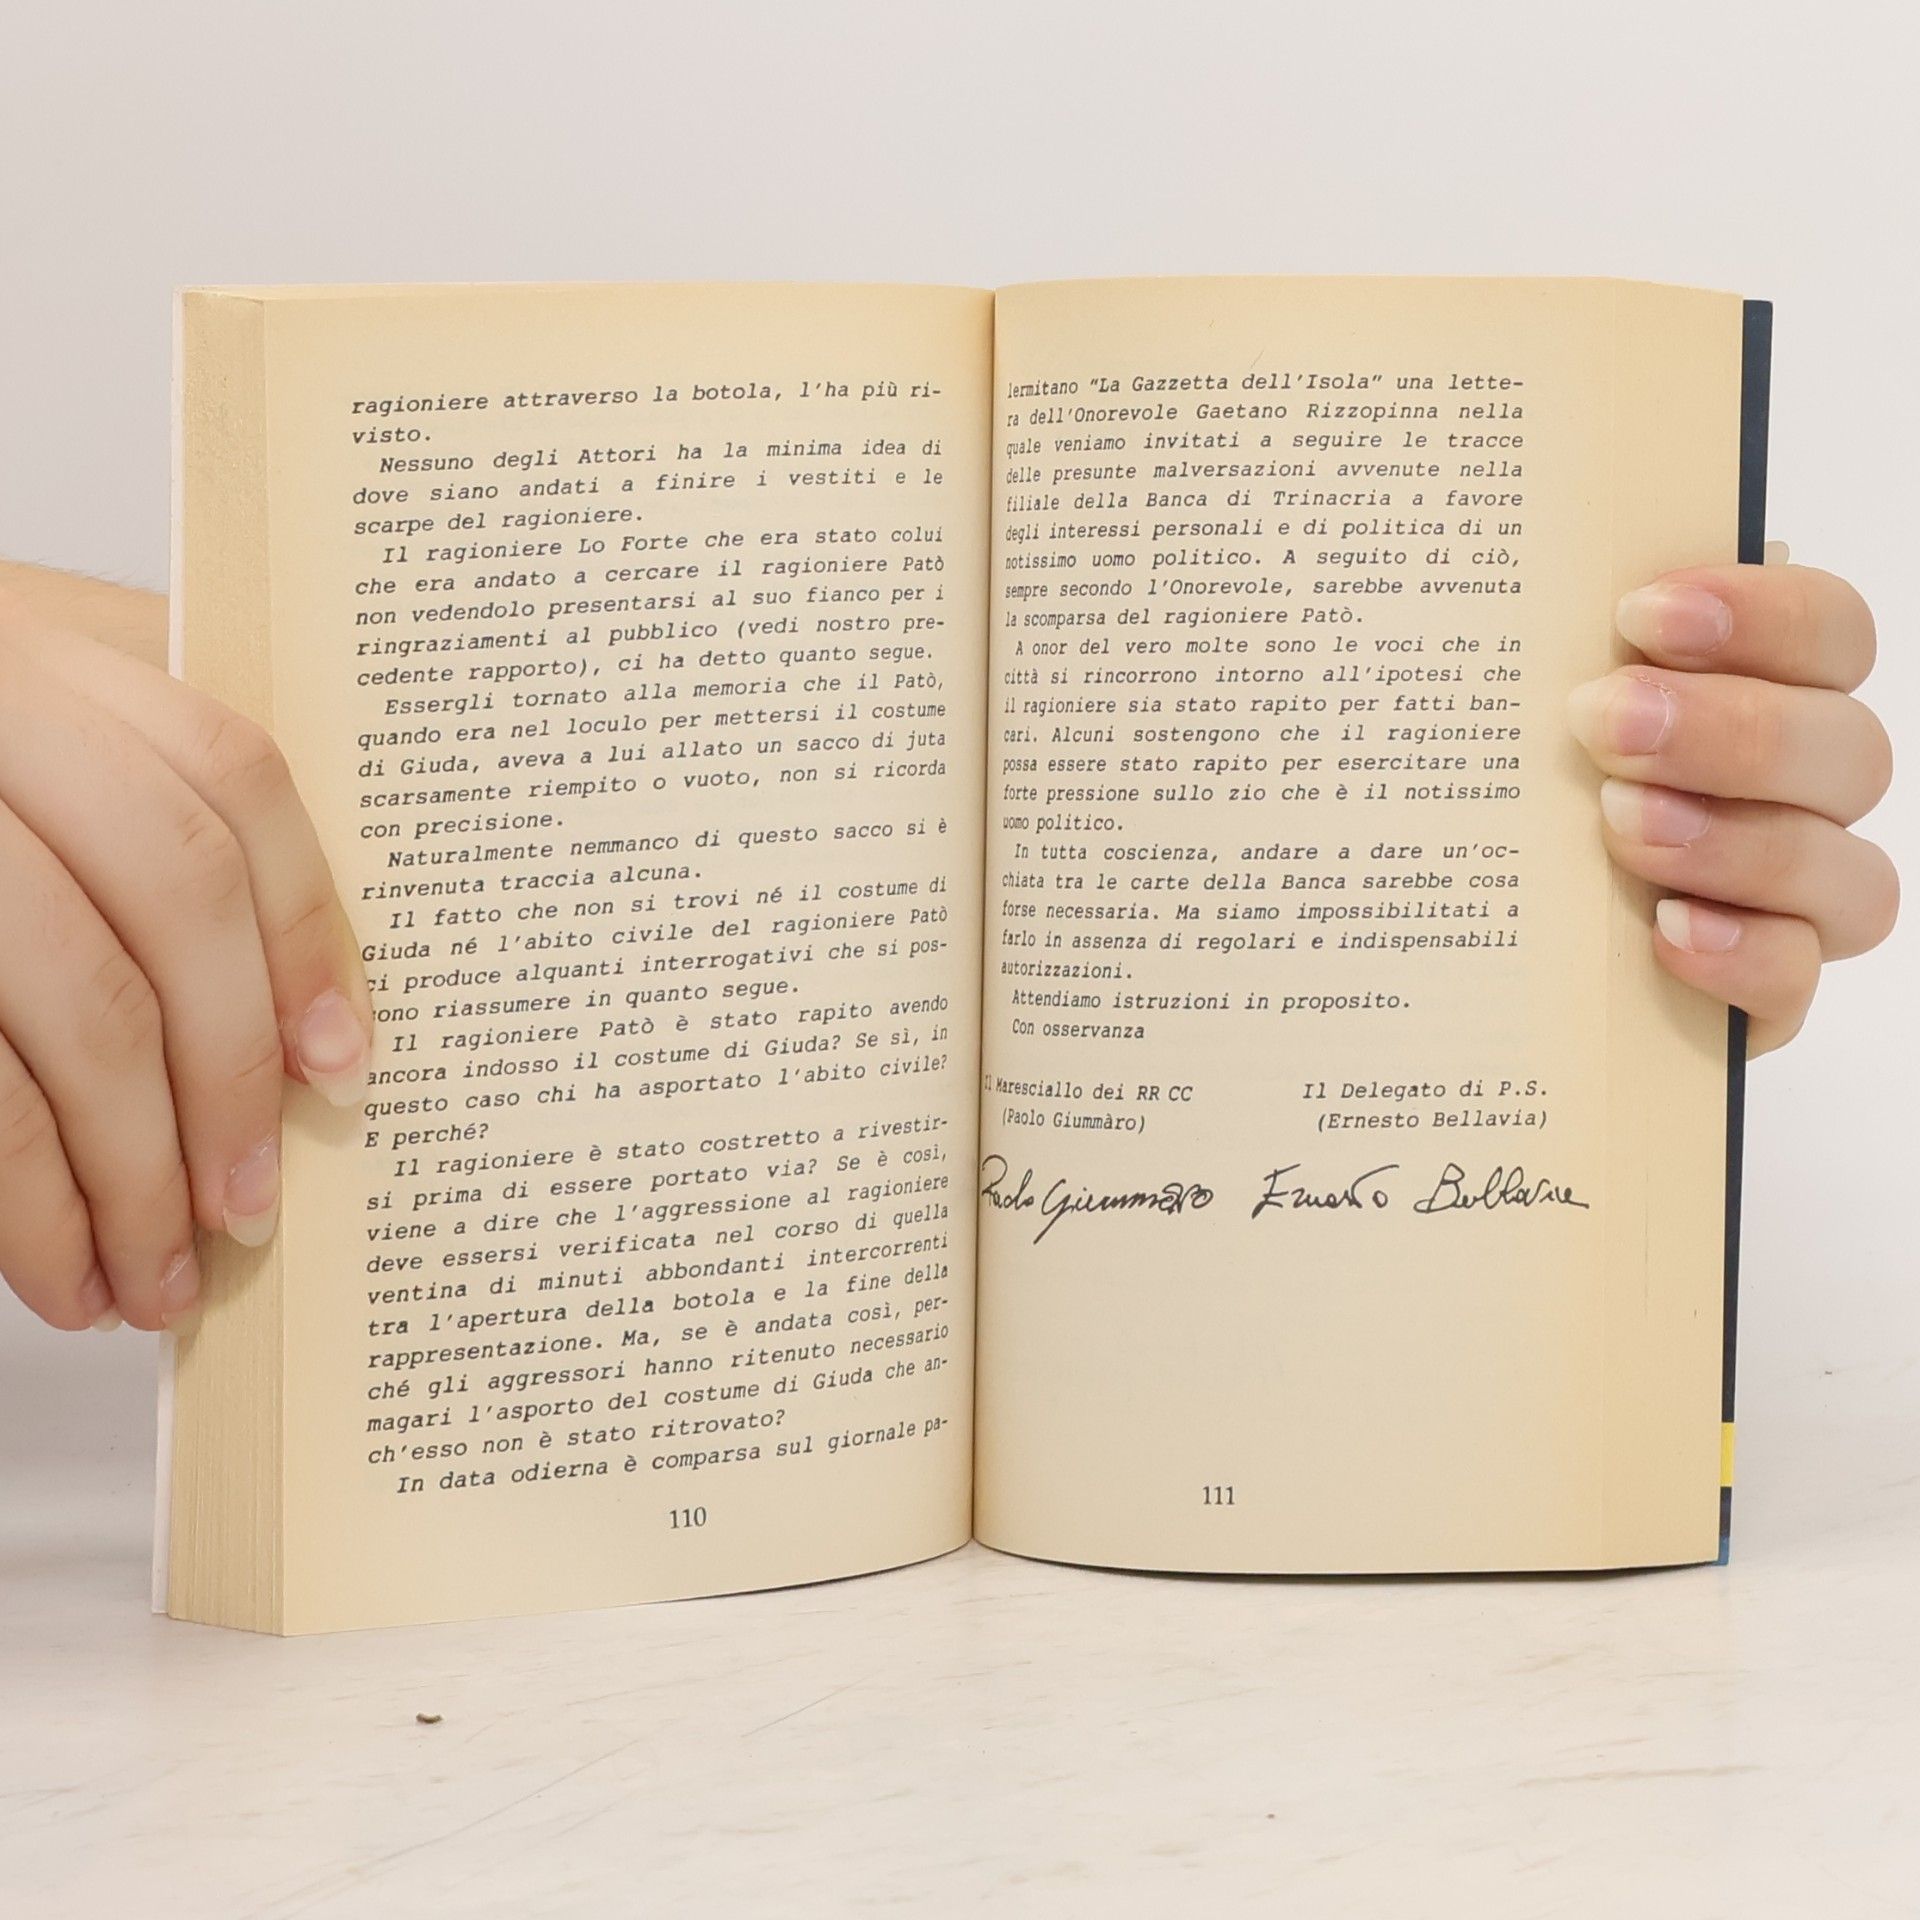 ragioniere attraverso la botola, l'ha più ri-
visto.
Nessuno degli Attori ha la minima idea di
dove siano andati a finire i vestiti e le
scarpe del ragioniere.
Il ragioniere Lo Forte che era stato colui
che era andato a cercare il ragioniere Patò
non vedendolo presentarsi al suo fianco per i
ringraziamenti al pubblico (vedi nostro pre-
cedente rapporto), ci ha detto quanto segue.
Essergli tornato alla memoria che il Patò,
quando era nel loculo per mettersi il costume
di Giuda, aveva a lui allato un sacco di juta
scarsamente riempito o vuoto, non si ricorda
con precisione.
Naturalmente nemmanco di questo sacco si è
rinvenuta traccia alcuna.
Il fatto che non si trovi né il costume di
Giuda né l'abito civile del ragioniere Patò
ci produce alquanti interrogativi che si pos-
sono riassumere in quanto segue.
Il ragioniere Patò è stato rapito avendo
ancora indosso il costume di Giuda? Se sì, in
questo caso chi ha asportato l'abito civile?
E perché?
Il ragioniere è stato costretto a rivestir-
si prima di essere portato via? Se è così,
viene a dire che l'aggressione al ragioniere
deve essersi verificata nel corso di quella
ventina di minuti abbondanti intercorrenti
tra l'apertura della botola e la fine della
rappresentazione. Ma, se è andata così, per-
ché gli aggressori hanno ritenuto necessario
magari l'asporto del costume di Giuda che an-
ch'esso non è stato ritrovato?
In data odierna è comparsa sul giornale pa-
110
lermitano "La Gazzetta dell'Isola" una lette-
ra dell'Onorevole Gaetano Rizzopinna nella
quale veniamo invitati a seguire le tracce
delle presunte malversazioni avvenute nella
filiale della Banca di Trinacria a favore
degli interessi personali e di politica di un
notissimo uomo politico. A seguito di ciò,
sempre secondo l'Onorevole, sarebbe avvenuta
la scomparsa del ragioniere Patò.
A onor del vero molte sono le voci che in
città si rincorrono intorno all'ipotesi che
il ragioniere sia stato rapito per fatti ban-
cari. Alcuni sostengono che il ragioniere
possa essere stato rapito per esercitare una
forte pressione sullo zio che è il notissimo
uomo politico.
In tutta coscienza, andare a dare un'oc-
chiata tra le carte della Banca sarebbe cosa
forse necessaria. Ma siamo impossibilitati a
farlo in assenza di regolari e indispensabili
autorizzazioni.
Attendiamo istruzioni in proposito.
Con osservanza
Il Maresciallo dei RR CC Il Delegato di P.S.
(Paolo Giummàro) (Ernesto Bellavia)
Paolo Giummàro Ernesto Bellavia
111